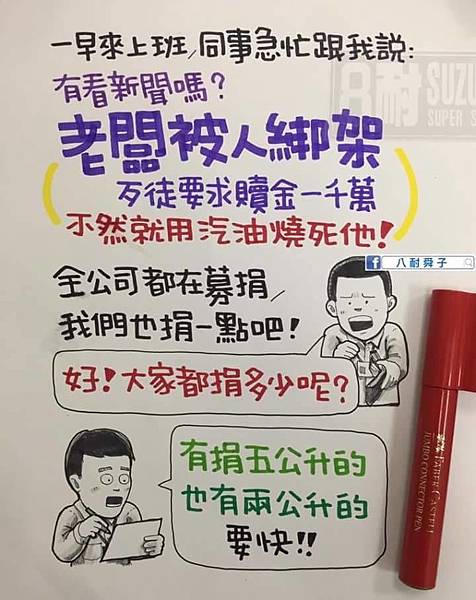 一早來上班,同事急忙跟我說:
有看新聞嗎?
老闆被人綁架
歹徒要求贖金一千萬
不然就用汽油燒死他!
全公司都在募捐,
我們也捐一點吧!
好!大家都捐多少呢?
有捐五公升的
也有兩公升的
要快!!
八耐舜子
8耐 SUZU
SUPER S
FABER CASTELL
JUMBO CONNECTOR PEN